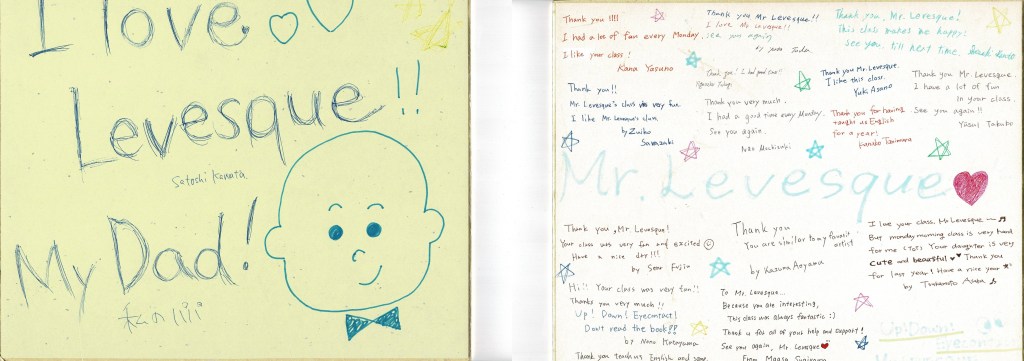 I love
Levesque!!
Satoshi Kanata
My Dad!
私のパパ
Thank you !!!!
I had a lot of fun every Monday.
I like your class!
Kana Yasuno
Thank you Mr Levesque!!
I love Mr Levesque!!
see you again
by
Thank you, Mr. Levesque!
This class makes me happy!
See you till next time.
Thank you! I had good time!!
Thank you Mr. Levesque.
I like this class.
Yuki Asano
Thank you Mr Levesque.
I have a lot of fun
in your class.
See you again!!
Yasui Takuho
Thank you!!
Mr. Levesque's class was very fun.
I like Mr. Levesque's class.
by Zuiko
Sawazaki
Thank you very much.
I had a good time every Monday.
See you again.
Nao Mochizuki
Thank you for having
taught us English
for a year!
Kanako
Mr. Levesque
Thank you, Mr Levesque!
Your class was very fun and excited
Have a nice day!!!
by Seer Fujin
Thank you
You are similar to my favorit
artist
by Kazuma Aoyama
I love your class. Mr Levesque ~ ♬
But monday morning class is very hard
for me (ToT) Your daughter is very
cute and beautiful ♥♥ Thank you
for last year! Have a nice year
by Tsukamoto Asuka ♪
Hi!! Your class was very fun!!
Thank you very much!!
Up! Down! Eyecontact!
Don't read the book!!
by Nono Katayama
To Mr. Levesque...
Because you are interesting,
This class was always fantastic :)
Thank u for all of your help and support!
See you again, Mr Levesque
From Maasa Sugiyama
Up! Down!
Thank you teach us English and